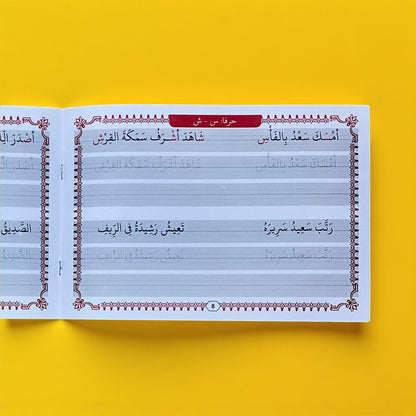 حرفا: س - ش
أمْسَكَ سَعْدُ بِالفَأْسِ    شَاهَدَ أشْرَفُ سَمَكَةَ القِرْشِ
أمْسَكَ سَعْدُ بِالفَأْسِ    شَاهَدَ أشْرَفُ سَمَكَةَ القِرْشِ
رَتَّبَ سَعِيدُ سَرِيرَهُ    تَعِيشُ رَشِيدَةُ فِى الرِّيفِ
رَتَّبَ سَعِيدُ سَرِيرَهُ    تَعِيشُ رَشِيدَةُ فِى الرِّيفِ
8
أصْدَرَ
الصَّدِيقُ